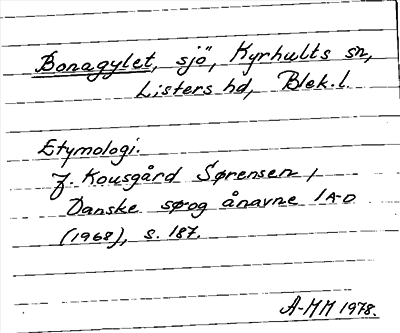 Bonagylet, sjö, Kyrhults sn,
Listers hd, Blek.l.
Etymologi.
J. Kousgård Sørensen,
Danske sø og ånavne 1 A-D
(1968), s. 187.
A-MM 1978.